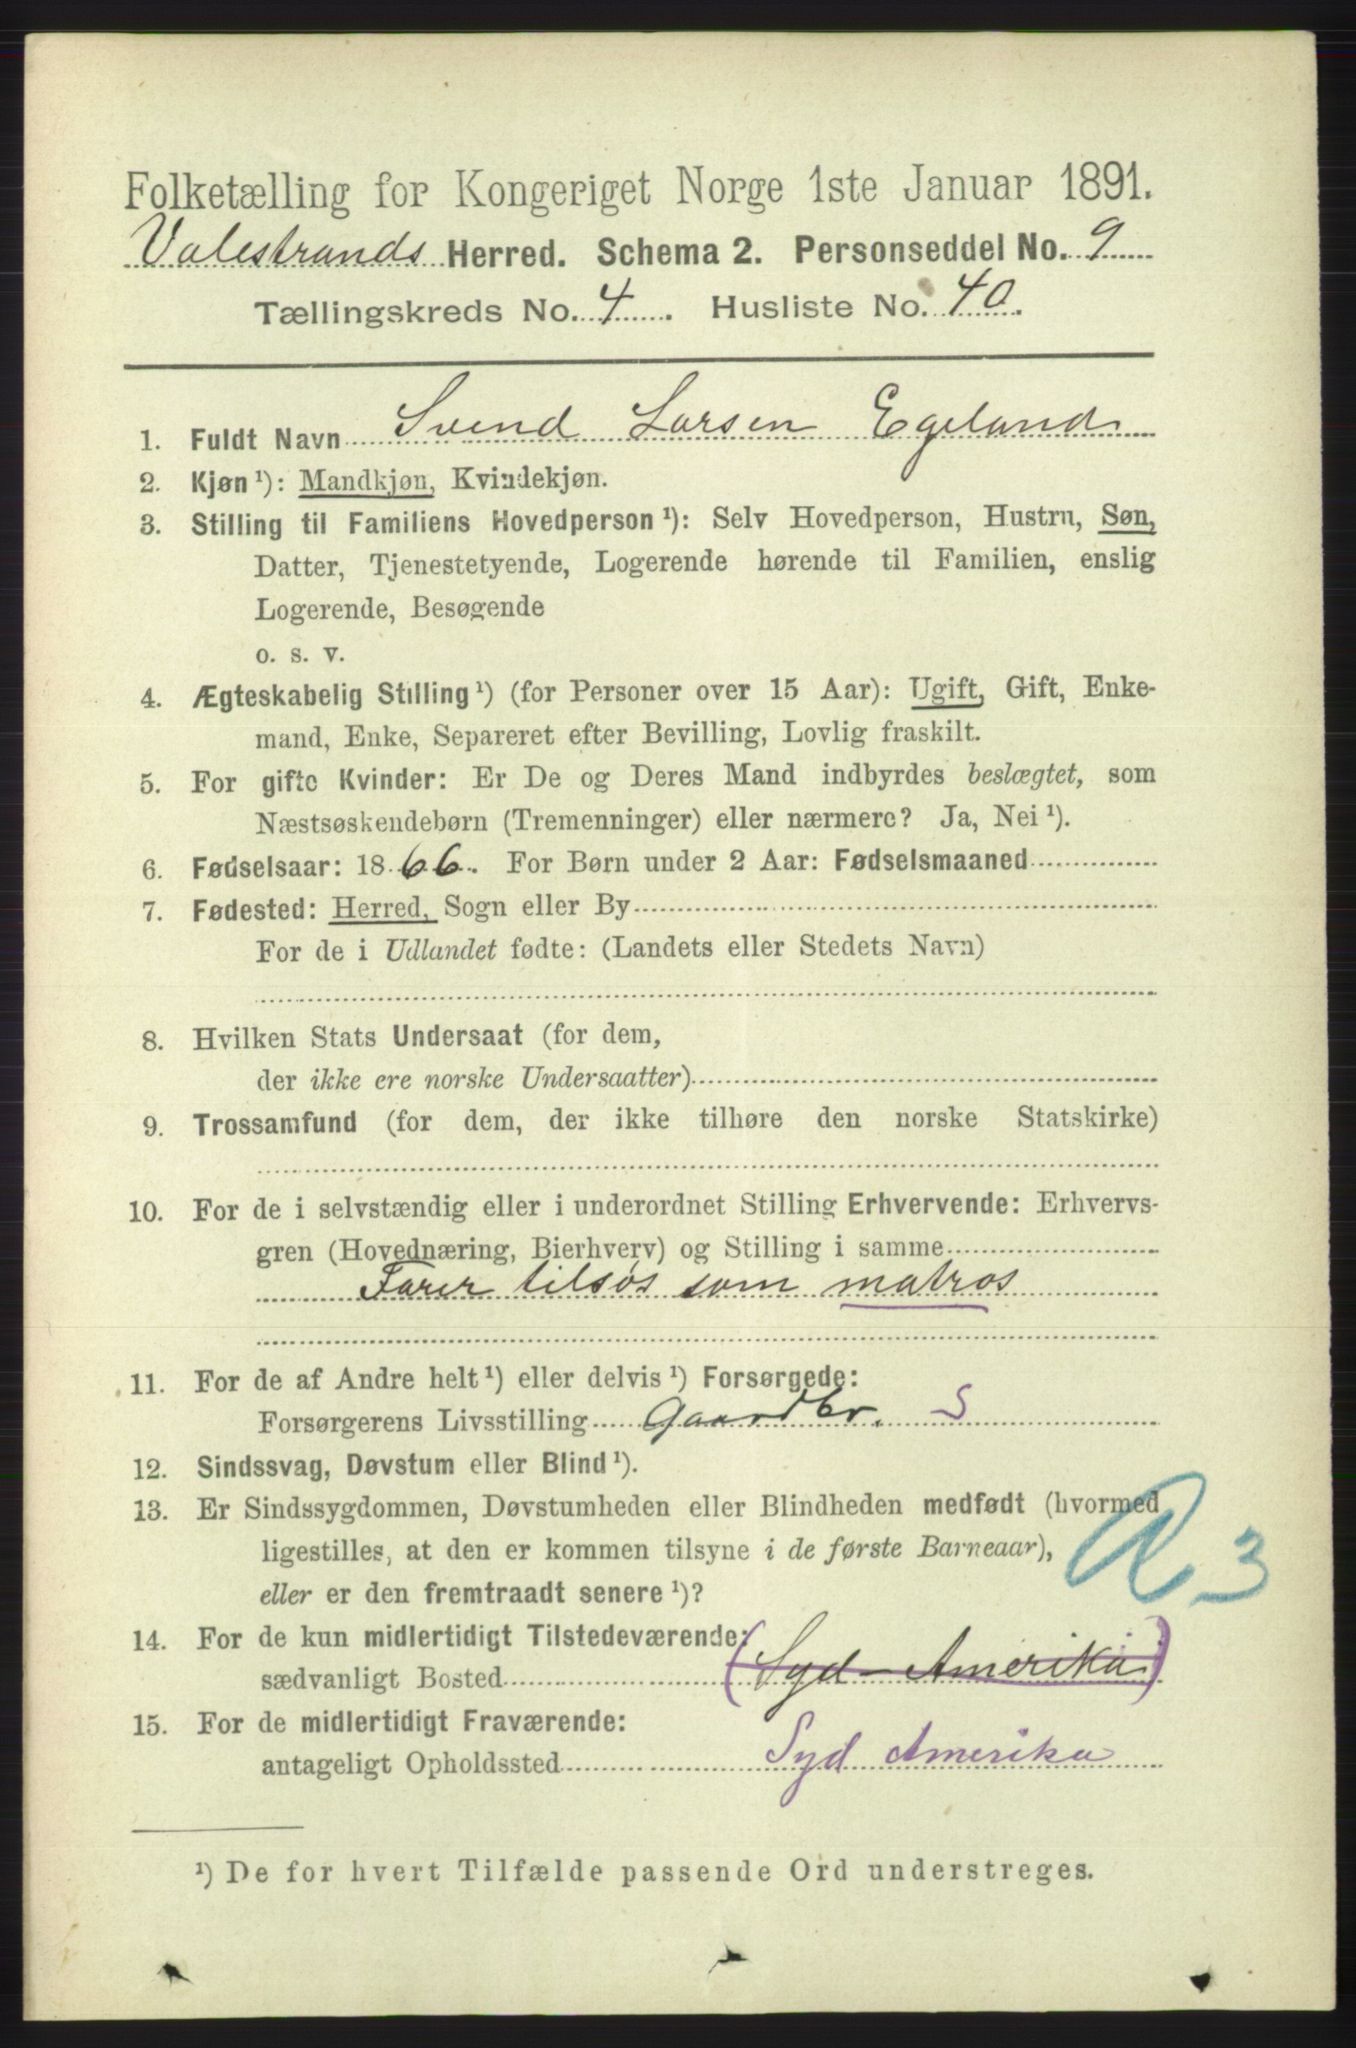 Folketælling for Kongeriget Norge 1ste Januar 1891.
Valestrands Herred. Schema 2. Personseddel No. 9
Tællingskreds No. 4. Husliste No. 40.
1. Fuldt Navn Svend Larsen Egeland
2. Kjøn¹): Mandkjøn, Kvindekjøn.
3. Stilling til Familiens Hovedperson¹): Selv Hovedperson, Hustru, Søn,
Datter, Tjenestetyende, Logerende hørende til Familien, enslig
Logerende, Besøgende
o. s. v.
4. Ægteskabelig Stilling¹) (for Personer over 15 Aar): Ugift, Gift, Enke-
mand, Enke, Separeret efter Bevilling, Lovlig fraskilt.
5. For gifte Kvinder: Er De og Deres Mand indbyrdes beslægtet, som
Næstsøskendebørn (Tremenninger) eller nærmere? Ja, Nei¹).
6. Fødselsaar: 1866. For Børn under 2 Aar: Fødselsmaaned
7. Fødested: Herred, Sogn eller By
For de i Udlandet fødte: (Landets eller Stedets Navn)
8. Hvilken Stats Undersaat (for dem,
der ikke ere norske Undersaatter)
9. Trossamfund (for dem, der ikke tilhøre den norske Statskirke)
10. For de i selvstændig eller i underordnet Stilling Erhvervende: Erhvervs-
gren (Hovednæring, Bierhverv) og Stilling i samme
Farer tilsøs som matros
11. For de af Andre helt¹) eller delvis¹) Forsørgede:
Forsørgerens Livsstilling Gaardbr. S
12. Sindssvag, Døvstum eller Blind¹).
13. Er Sindssygdommen, Døvstumheden eller Blindheden medfødt (hvormed
ligestilles, at den er kommen tilsyne i de første Barneaar),
eller er den fremtraadt senere¹)?
3
14. For de kun midlertidigt Tilstedeværende:
sædvanligt Bosted (Syd-Amerika)
15. For de midlertidigt Fraværende:
antageligt Opholdssted Syd Amerika
¹) De for hvert Tilfælde passende Ord understreges.